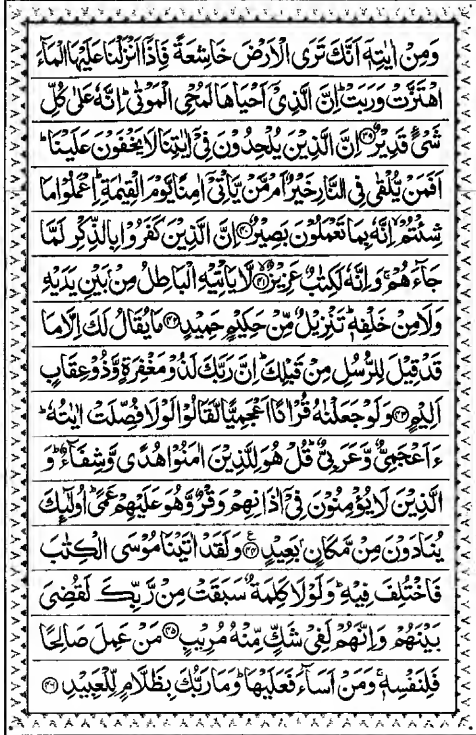 وَمِنْ اٰيٰتِهٖٓ اَنَّكَ تَرَى الْاَرْضَ خَاشِعَةً فَاِذَآ اَنْزَلْنَا عَلَيْهَا الْمَآءَ
اهْتَزَّتْ وَرَبَتْ ؕ اِنَّ الَّذِيْٓ اَحْيَاهَا لَمُحْيِ الْمَوْتٰى ؕ اِنَّهٗ عَلٰى كُلِّ
شَيْءٍ قَدِيْرٌ ﴿۳۹﴾ اِنَّ الَّذِيْنَ يُلْحِدُوْنَ فِيْٓ اٰيٰتِنَا لَا يَخْفَوْنَ عَلَيْنَا ؕ
اَفَمَنْ يُّلْقٰى فِي النَّارِ خَيْرٌ اَمْ مَّنْ يَّاْتِيْٓ اٰمِنًا يَّوْمَ الْقِيٰمَةِ ؕ اِعْمَلُوْا مَا
شِئْتُمْ ۙ اِنَّهٗ بِمَا تَعْمَلُوْنَ بَصِيْرٌ ﴿۴۰﴾ اِنَّ الَّذِيْنَ كَفَرُوْا بِالذِّكْرِ لَمَّا
جَآءَهُمْ ۚ وَاِنَّهٗ لَكِتٰبٌ عَزِيْزٌ ﴿۴۱﴾ لَّا يَاْتِيْهِ الْبَاطِلُ مِنْۢ بَيْنِ يَدَيْهِ
وَلَا مِنْ خَلْفِهٖ ؕ تَنْزِيْلٌ مِّنْ حَكِيْمٍ حَمِيْدٍ ﴿۴۲﴾ مَا يُقَالُ لَكَ اِلَّا مَا
قَدْ قِيْلَ لِلرُّسُلِ مِنْ قَبْلِكَ ؕ اِنَّ رَبَّكَ لَذُوْ مَغْفِرَةٍ وَّذُوْ عِقَابٍ
اَلِيْمٍ ﴿۴۳﴾ وَلَوْ جَعَلْنٰهُ قُرْاٰنًا اَعْجَمِيًّا لَّقَالُوْا لَوْلَا فُصِّلَتْ اٰيٰتُهٗ ؕ
ءَاَعْجَمِيٌّ وَّعَرَبِيٌّ ؕ قُلْ هُوَ لِلَّذِيْنَ اٰمَنُوْا هُدًى وَّشِفَآءٌ ؕ وَ
الَّذِيْنَ لَا يُؤْمِنُوْنَ فِيْٓ اٰذَانِهِمْ وَقْرٌ وَّهُوَ عَلَيْهِمْ عَمًى ؕ اُولٰٓئِكَ
يُنَادَوْنَ مِنْ مَّكَانٍۢ بَعِيْدٍ ﴿۴۴﴾ وَلَقَدْ اٰتَيْنَا مُوْسَى الْكِتٰبَ
فَاخْتُلِفَ فِيْهِ ؕ وَلَوْلَا كَلِمَةٌ سَبَقَتْ مِنْ رَّبِّكَ لَقُضِيَ
بَيْنَهُمْ ؕ وَاِنَّهُمْ لَفِيْ شَكٍّ مِّنْهُ مُرِيْبٍ ﴿۴۵﴾ مَنْ عَمِلَ صَالِحًا
فَلِنَفْسِهٖ ۚ وَمَنْ اَسَآءَ فَعَلَيْهَا ؕ وَمَا رَبُّكَ بِظَلَّامٍ لِّلْعَبِيْدِ ﴿۴۶﴾